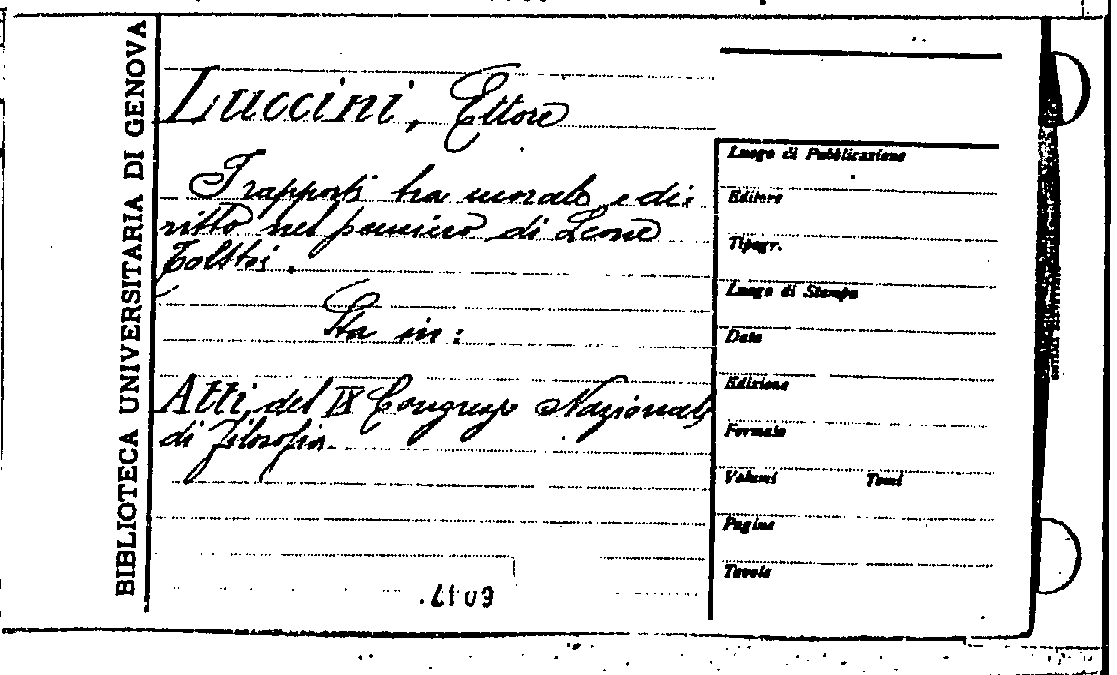 BIBLIOTECA UNIVERSITARIA DI GENOVA
Luccini, Ettore
I rapporti tra morale e di-
ritto nel pensiero di Leone
Tolstoi.
Sta in:
Atti del IX Congresso Nazionale
di Filosofia
Luogo di Pubblicazione
Editore
Tipogr.
Luogo di Stampa
Data
Edizione
Formato
Volumi Tomi
Pagine
Tavole